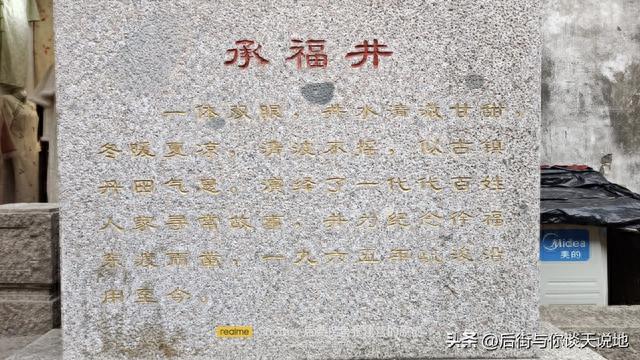 承福井
一体双眼，井水清冽甘甜，
冬暖夏凉，清波不摇，似古镇
丹田气息，演绎了一代代百姓
人家寻常故事，井为纪念徐福
东渡而凿，一九六五年疏浚沿
用至今。
Midea
美的
realme
头条 @后街与你谈天说地